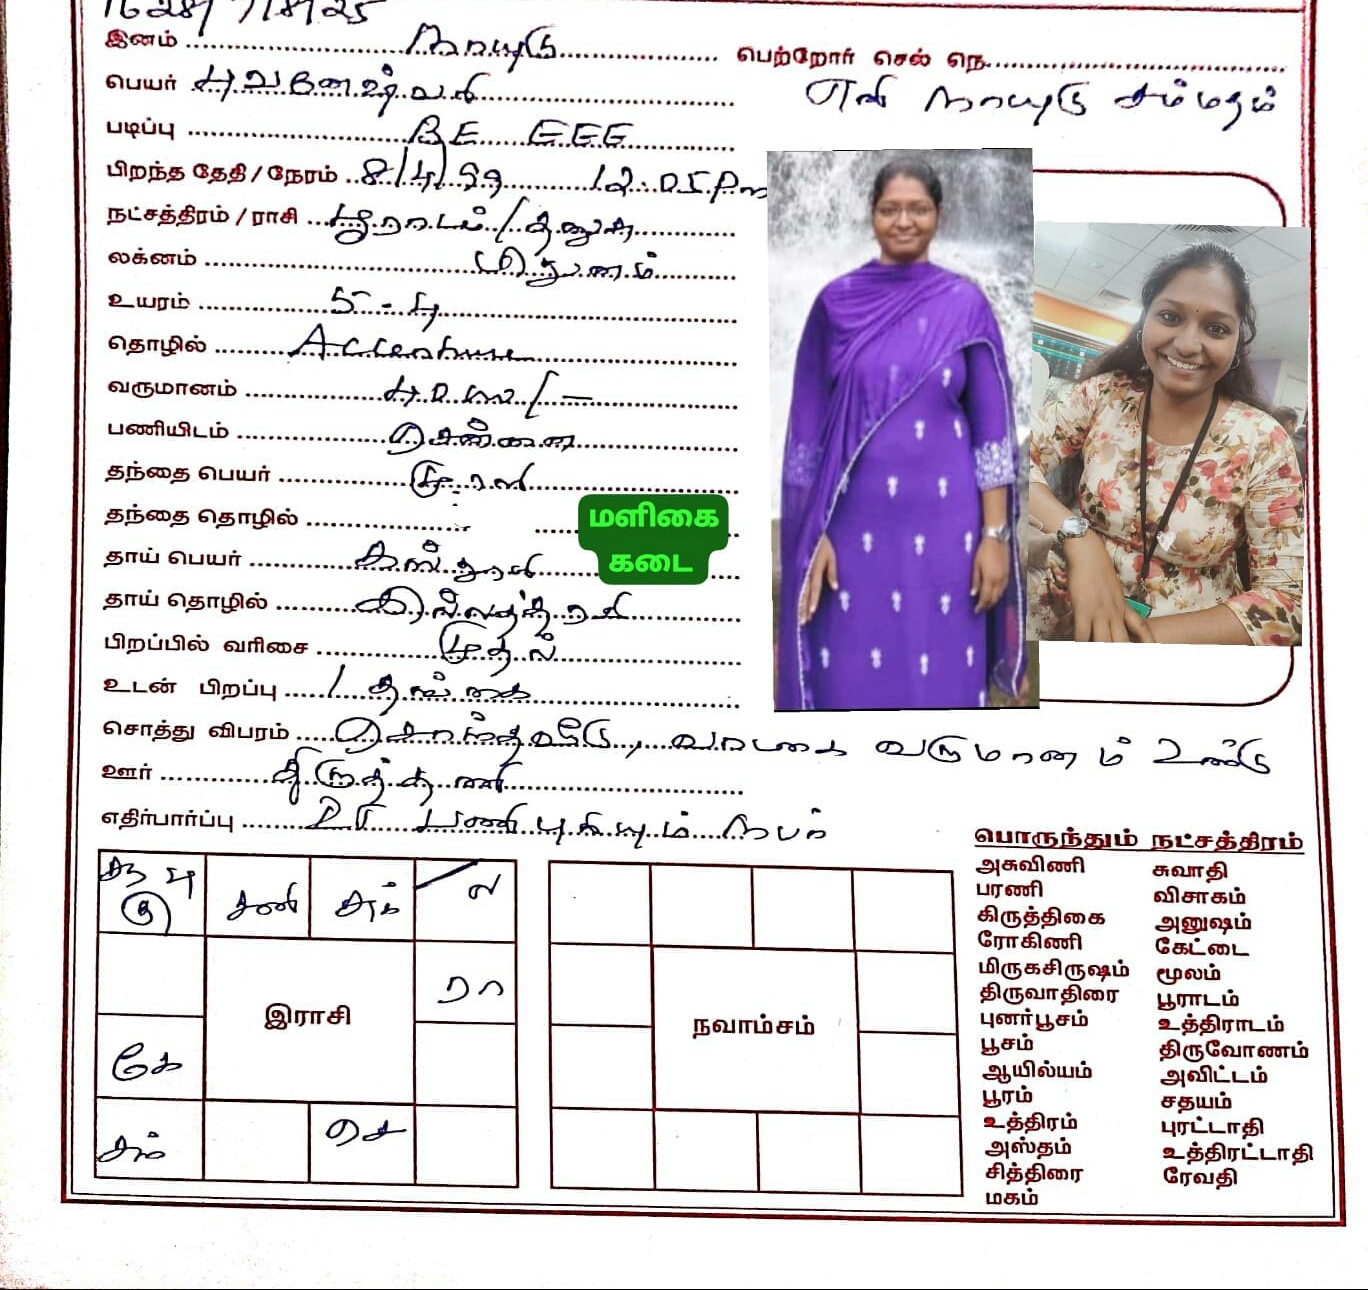 1628/7/8/25
இனம் ..... நாயுடு ..... பெற்றோர் செல் நெ.....
பெயர் புவனேஷ்வரி
எனி நாயுடு சம்மதம்
படிப்பு ..... BE EEE
பிறந்த தேதி / நேரம் ..8/4/99 12.05.Pm
நட்சத்திரம் / ராசி ...பூராடம் / தனுசு
லக்னம் ..... மிதுனம்
உயரம் ..... 5-4
தொழில் ..... Accenture
வருமானம் ..... /-
பணியிடம் ..... சென்னை
தந்தை பெயர் ..... முரளி
தந்தை தொழில் ..... மளிகை
கடை
தாய் பெயர் ..... கஸ்தூரி
தாய் தொழில் ..... இல்லத்தரசி
பிறப்பில் வரிசை ..... முதல்
உடன் பிறப்பு ..... 1 தங்கை
சொத்து விபரம் ..... சொந்தவீடு, வாடகை வருமானம் உண்டு
ஊர் ..... திருத்தணி
எதிர்பார்ப்பு ..... பணிபுரியும் நபர்
பு
குரு சனி சுக் ல
ரா
இராசி
கே
சந் செ
நவாம்சம்
பொருந்தும் நட்சத்திரம்
அசுவிணி சுவாதி
பரணி விசாகம்
கிருத்திகை அனுஷம்
ரோகிணி கேட்டை
மிருகசிருஷம் மூலம்
திருவாதிரை பூராடம்
புனர்பூசம் உத்திராடம்
பூசம் திருவோணம்
ஆயில்யம் அவிட்டம்
பூரம் சதயம்
உத்திரம் புரட்டாதி
அஸ்தம் உத்திரட்டாதி
சித்திரை ரேவதி
மகம்